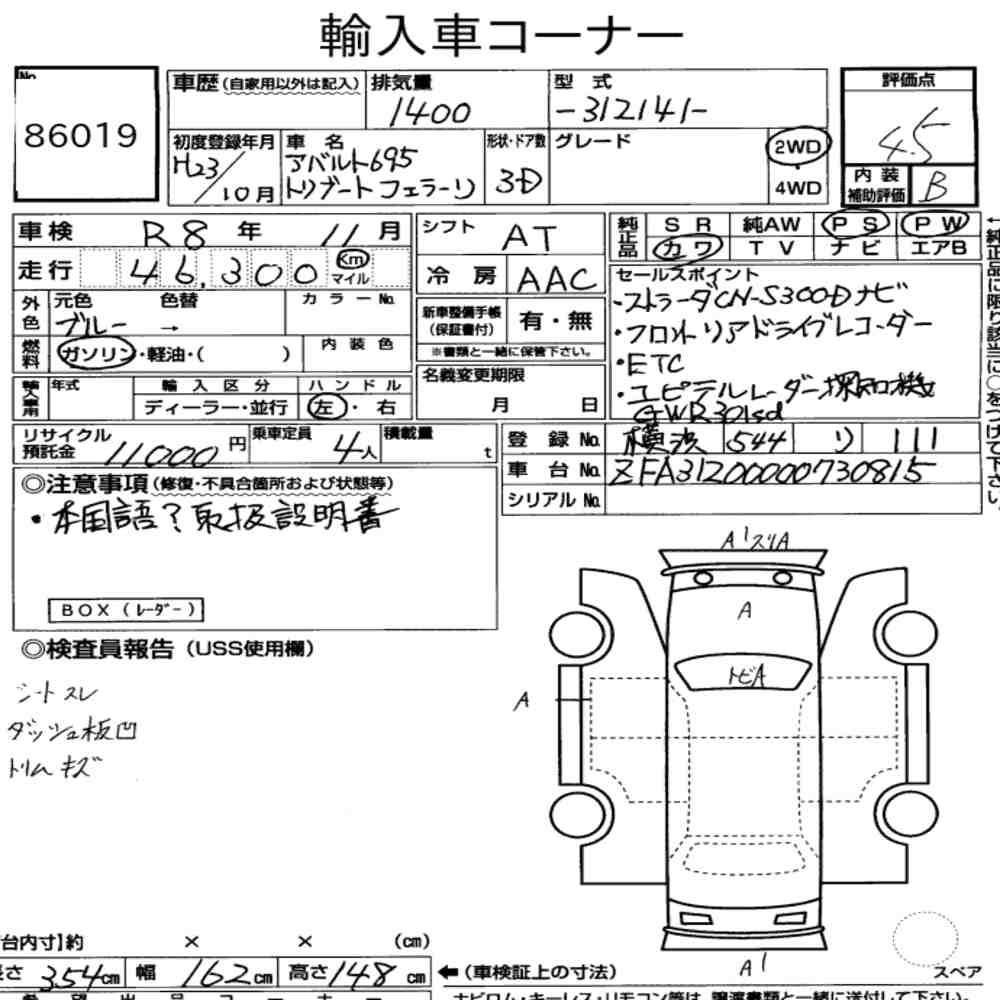 輸入車コーナー
No.
86019
車歴(自家用以外は記入)
排気量
1400
型式
-312141-
評価点
4.5
初度登録年月
H23/10月
車名
アバルト695
トリブートフェラーリ
形状・ドア数
3-D
グレード
2WD
4WD
内装
補助評価
B
車検
R8年11月
シフト
AT
純正品
SR 純AW PS PW
カワ TV ナビ エアB
走行
46,300 Km
マイル
冷房
AAC
セールスポイント
・ストラーダCN-S300Dナビ
・フロントリアドライブレコーダー
・ETC
・ユピテルレーダー探知機
GWR301sd
←純正品に限り該当に○をつけて下さい。
外色
元色 色替 カラーNo.
ブルー →
新車整備手帳
(保証書付)
有・無
※書類と一緒に保管下さい。
燃料
ガソリン・軽油・( )
内装色
名義変更期限
月 日
輸入車用
年式
輸入区分
ディーラー・並行
ハンドル
左・右
リサイクル
預託金
11000円
乗車定員
4人
積載量
t
登録No.
横浜 544 り 111
車台No.
ZFA31200000730815
シリアルNo.
◎注意事項(修復・不具合箇所および状態等)
・本国語?取扱説明書
BOX(レーダー)
◎検査員報告(USS使用欄)
シートスレ
ダッシュ板凹
トリムキズ
A1スリA
A
トビA
A
A1
スペア
台内寸】約 × × (cm)
長さ354cm 幅162cm 高さ148cm
←(車検証上の寸法)
ナビロム・キーレス・リモコン等は、譲渡書類と一緒に送付して下さい。